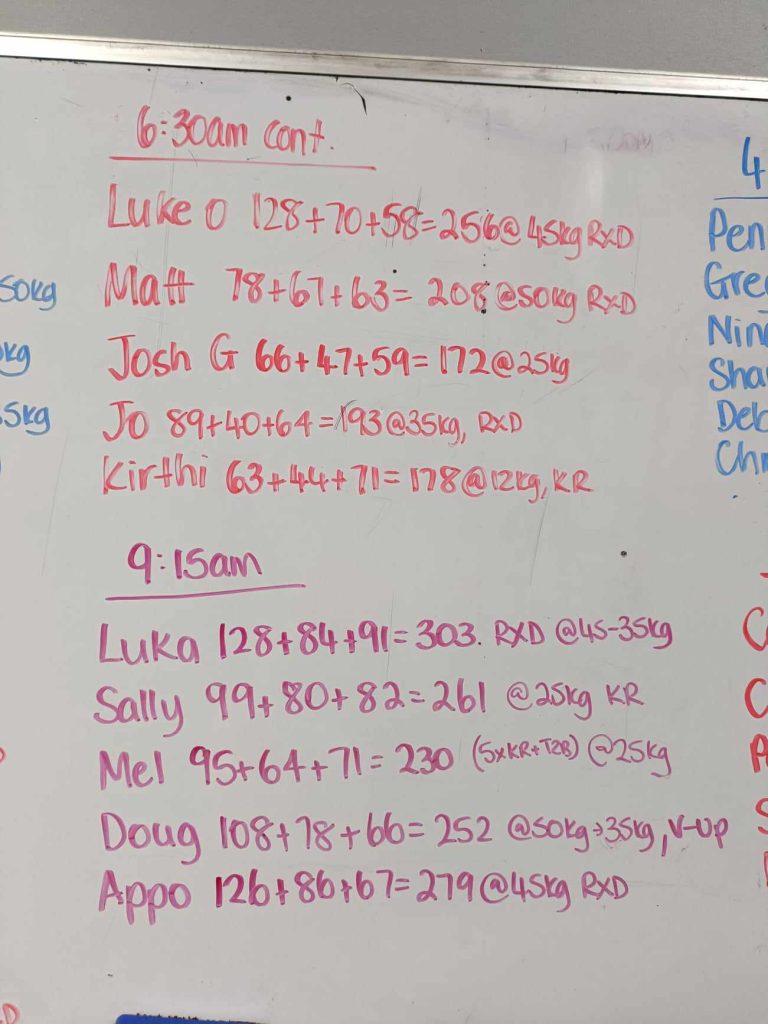 6:30am cont.
Luke O 128+70+58=256@45kg RXD
Matt 78+67+63= 208 @50kg RXD
Josh G 66+47+59=172@25kg
Jo 89+40+64=193@35kg, RXD
Kirthi 63+44+71=178@12kg, KR
9:15am
Luka 128+84+91=303. RXD @45-35kg
Sally 99+80+82=261 @25kg KR
Mel 95+64+71=230 (5xKR+T2B) @25kg
Doug 108+78+66=252 @50kg→35kg, V-Up
Appo 126+86+67=279@45kg RXD
50kg
kg
5kg
4
Pen
Gree
Nin
Sha
Deb
Chr